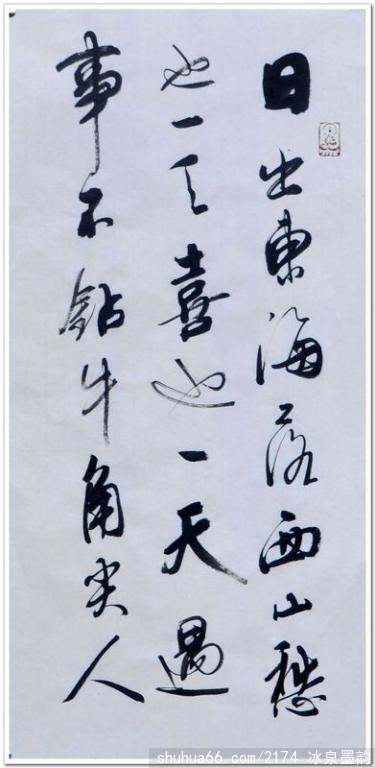 日出東海落西山愁
也一天喜也一天遇
事不鉆牛角尖人
shuhua66.com/2174 冰泉墨韵